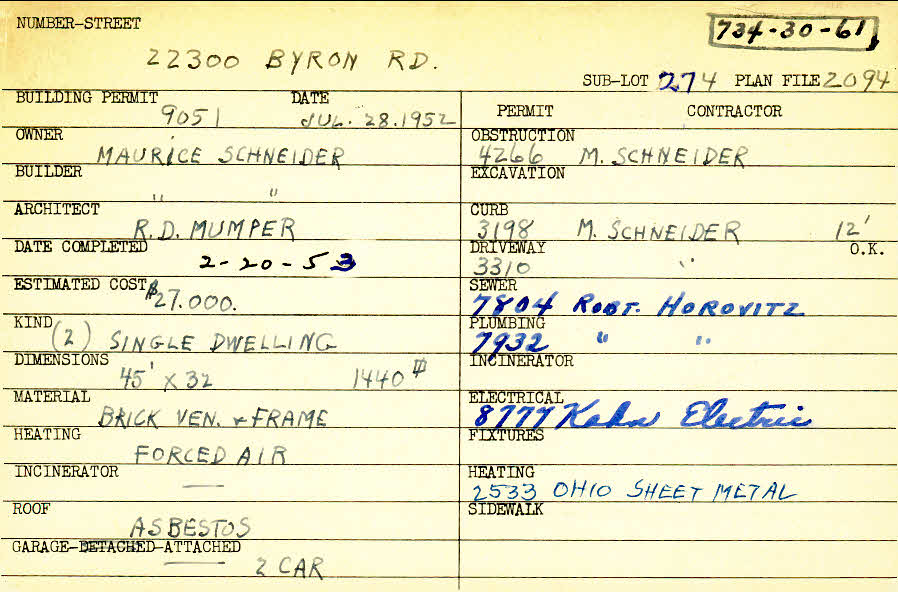 NUMBER-STREET
734-30-61
22300 BYRON RD.
SUB-LOT 274 PLAN FILE 2094
BUILDING PERMIT DATE
9051 JUL. 28.1952
OWNER
MAURICE SCHNEIDER
BUILDER
" "
ARCHITECT
R.D. MUMPER
DATE COMPLETED
2-20-53
ESTIMATED COST $27.000.
KIND
(2) SINGLE DWELLING
DIMENSIONS
45' X 32 1440
MATERIAL
BRICK VEN. & FRAME
HEATING
FORCED AIR
INCINERATOR
—
ROOF
ASBESTOS
GARAGE-DETACHED-ATTACHED
2 CAR
PERMIT CONTRACTOR
OBSTRUCTION
4266 M. SCHNEIDER
EXCAVATION
CURB
3198 M. SCHNEIDER 12'
DRIVEWAY O.K.
3310 "
SEWER
7804 ROBT. HOROVITZ
PLUMBING
7932 " "
INCINERATOR
ELECTRICAL
8777 Kahn Electric
FIXTURES
HEATING
2533 OHIO SHEET METAL
SIDEWALK